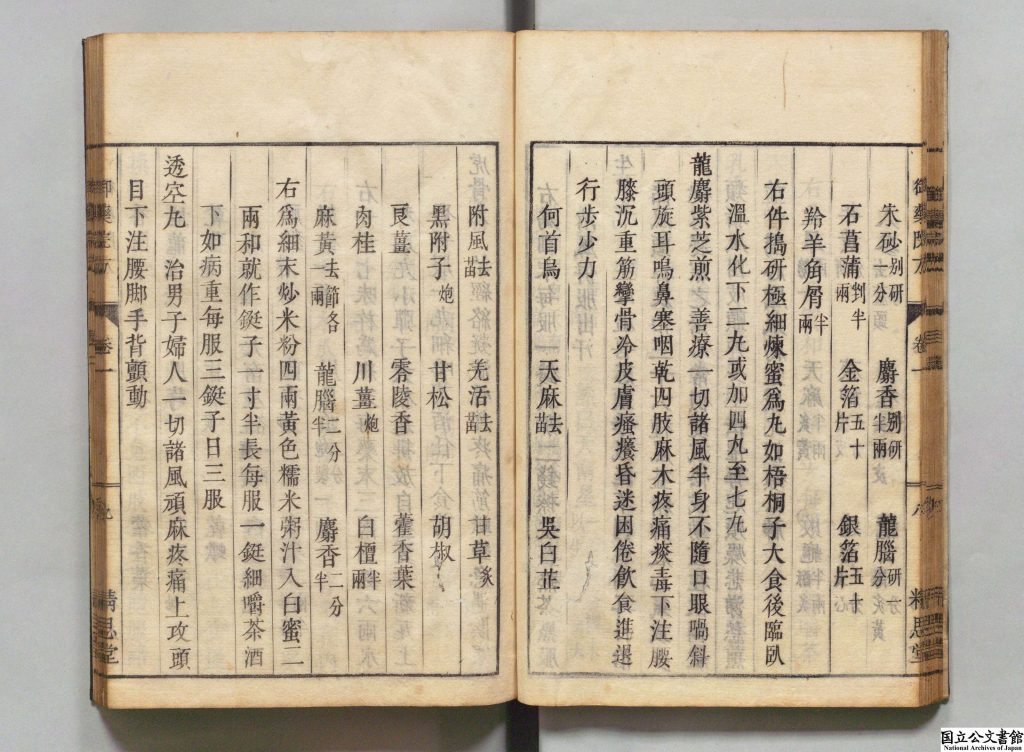 朱砂別研一分 麝香別研半兩 龍腦研一分
石菖蒲剉半兩 金箔五十片 銀箔五十片
羚羊角屑半兩
右件搗研極細煉蜜爲丸如梧桐子大食後臨臥
溫水化下二丸或加四丸至七丸
龍麝紫芝煎 善療一切諸風半身不隨口眼喎斜
頭旋耳鳴鼻塞咽乾四肢麻木疼痛痰毒下注腰
膝沉重筋攣骨冷皮膚瘙癢昏迷困倦飲食進退
行步少力
何首烏 天麻去苗 吳白芷
御藥院方 卷一 八 精思堂
防風去苗 羌活去苗 甘草炙
黑附子炮 甘松 胡椒
良薑 零陵香 藿香葉
肉桂 川薑炮 白檀半兩
麻黃去節各一兩 龍腦二分半 麝香二分半
右爲細末炒米粉四兩黃色糯米粥汁入白蜜二
兩和就作鋌子一寸半長每服一鋌細嚼茶酒
下如病重每服三鋌子日三服
透空丸 治男子婦人一切諸風頑麻疼痛上攻頭
目下注腰脚手背顫動
御藥院方 卷一 九 精思堂
国立公文書館
National Archives of Japan